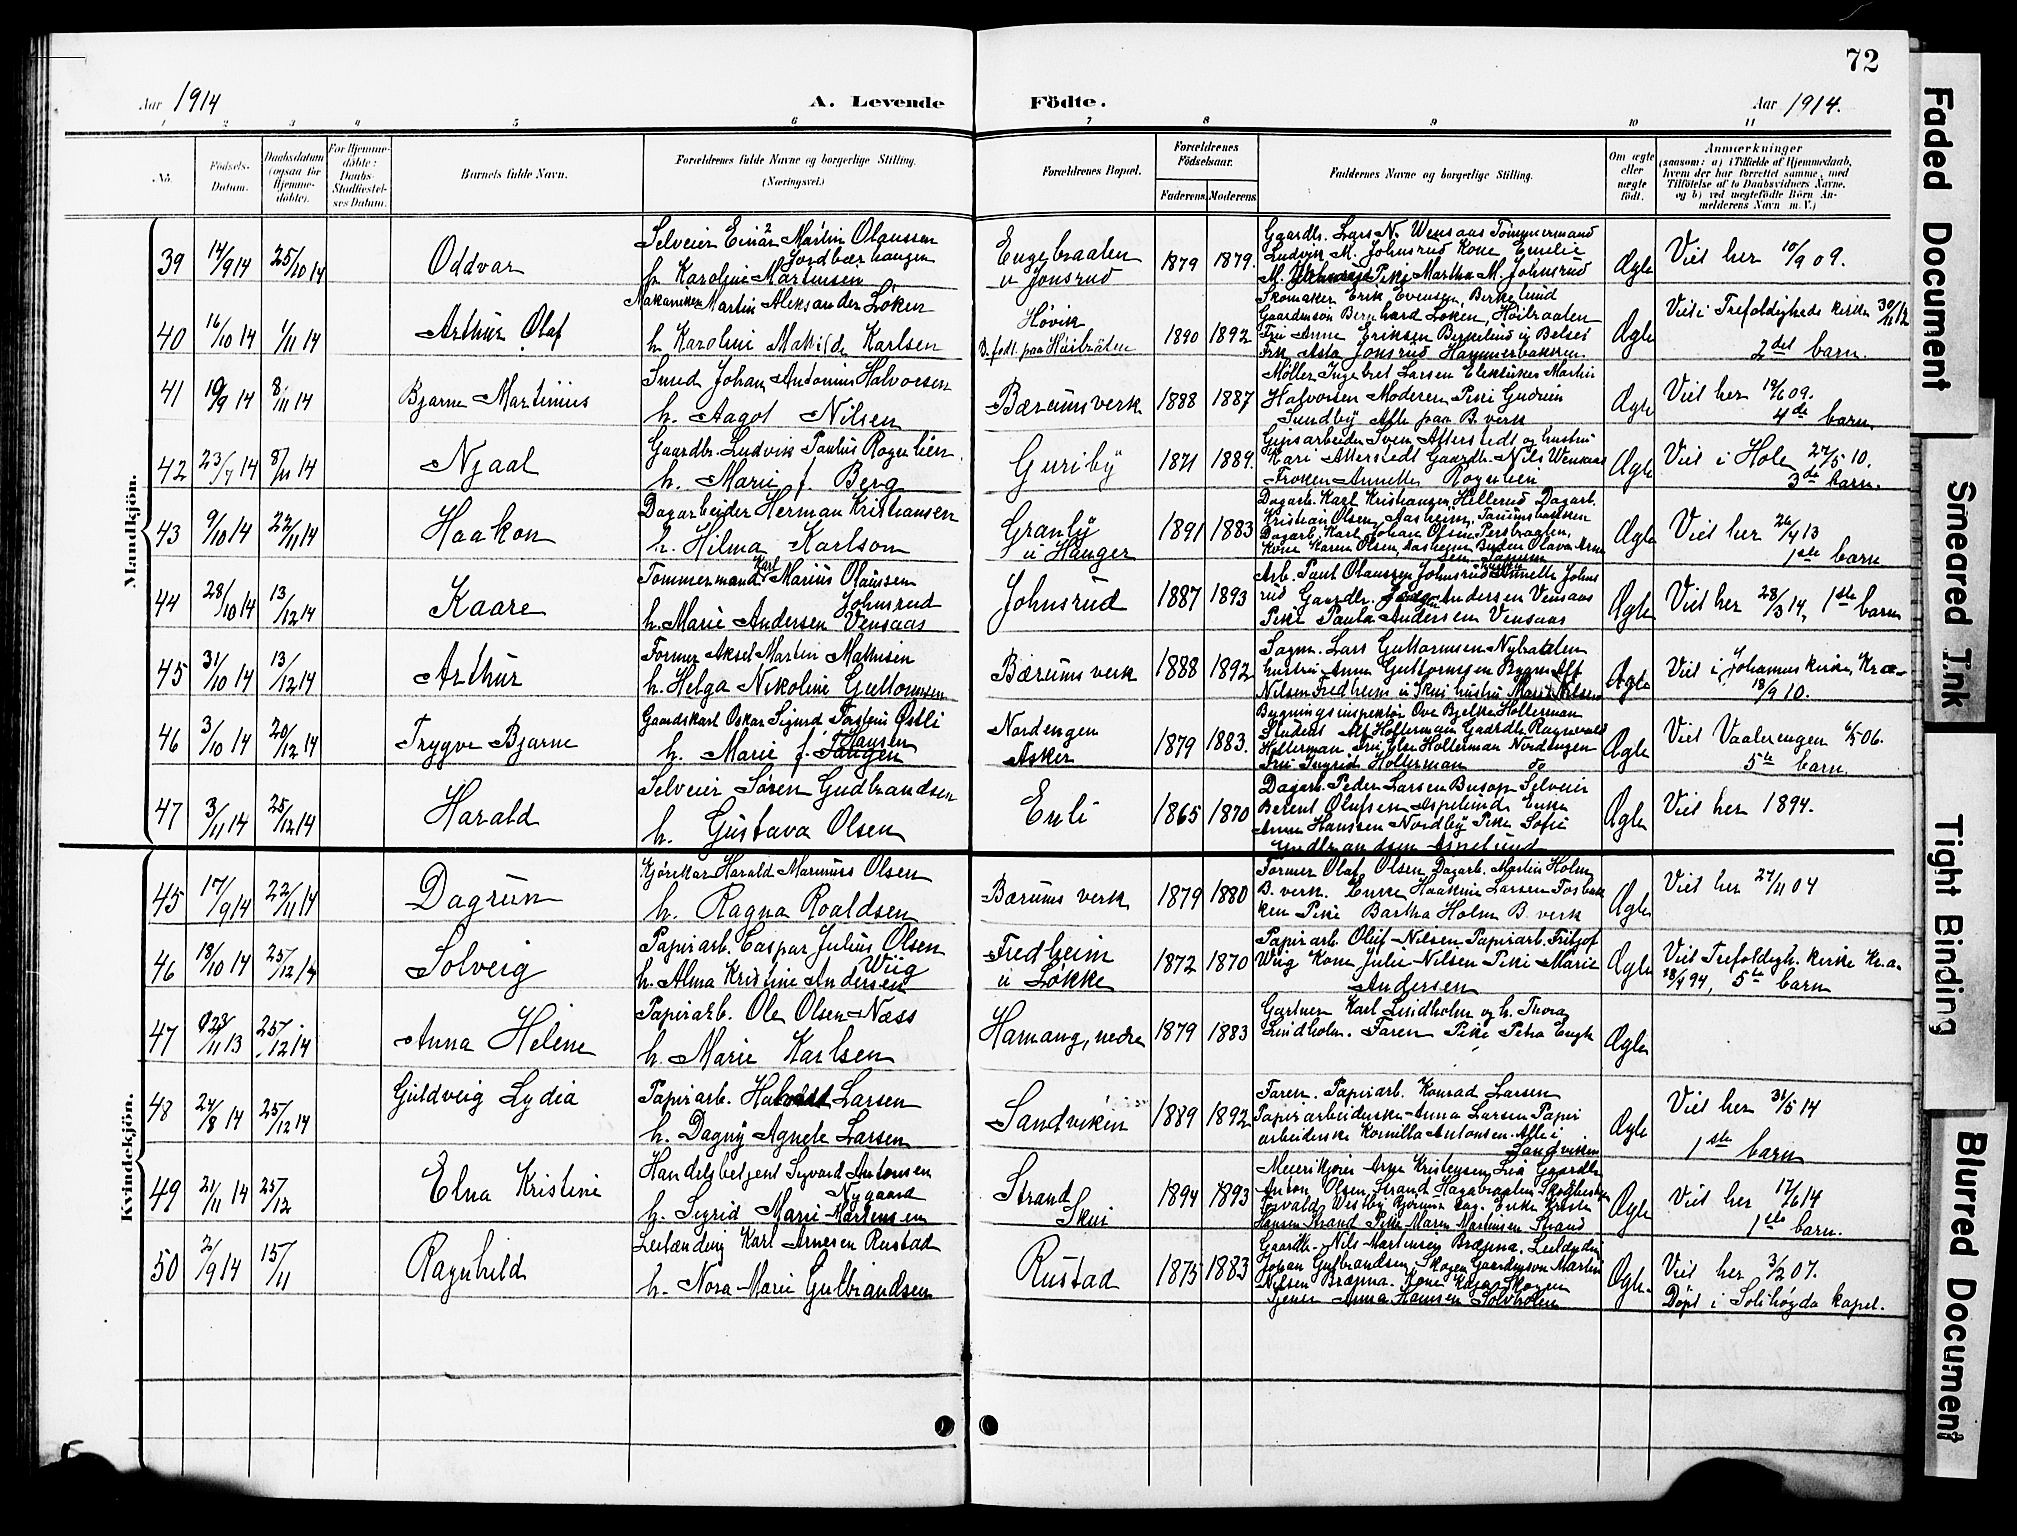 72
Aar 1914
A. Levende
Födte.
Aar 1914.
1 2 3 4 5 6 7 8 9 10 11
No.
Födsels-
Datum.
Daabsdatum
(ogsaa for
Hjemme-
döbte).
For Hjemme-
döbte:
Daabs-
Stadfæstel-
ses Datum.
Barnets fulde Navn.
Forældrenes fulde Navne og borgerlige Stilling.
(Næringsvei.)
Forældrenes Bopæl.
Forældrenes
Födselsaar.
Faderens. Moderens.
Faddernes Navne og borgerlige Stilling.
Om ægte
eller
uægte
födt.
Anmærkninger
(saasom: a) i Tilfælde af Hjemmedaab,
hvem der har forrettet samme, med
Tilföielse af to Daabsvidners Navne,
og b) ved uægtefödte Börn An-
melderens Navn m. V.)
Mandkjön.
39
14/9 14
25/10 14
Oddvar
Selveier Einar Martin Olaussen
Jordbærhaugen
h. Karoline Martinsen
Engebraaten
u Jonsrud
1879
1879.
Gaardb. Lars N. Wensaas Tömmermand
Ludvik M. Johnsrud Kone Emilie
M. Johnsrud Pike Martha M. Johnsrud
Ægte
Viet her 10/9 09.
40
16/10 14
1/11 14
Arthur Olaf
Mekaniker Martin Aleksander Löken
h. Karoline Matilde Karlsen
Hövik
B. födt paa Höibråten
1890
1892
Skomaker Erik Evensen, Berkelund
Gaardmsön Bernhard Löken, Höibraaten
Fru Anne Eriksen Berkelund u Belset
Frk Asta Jonsrud Hammerbakken
Ægte
Viet i Trefoldigheds kirken 30/11 12
2det barn.
41
10/9 14
8/11 14
Bjarne Martinius
Smed Johan Antonius Halvorsen
h. Aagot Nilsen
Bærums verk
1888
1887
Möller Ingebret Larsen Elektriker Martin
Halvorsen Moderen Pike Gudrun
Sundby Alle paa B. verk
Ægte
Viet her 19/6 09.
4de barn
42
23/7 14
8/11 14
Njaal
Gaardbr. Ludvik Paulus Rognlien
h. Marie f. Berg
Guriby
1871
1889.
Gipsarbeider Sven Atterstedt og hustru
Kari Atterstedt Gaardb. Nils Wensaas
Fröken Annette Rognlien
Ægte
Viet i Hole 27/5 10.
3de barn.
43
9/10 14
22/11 14
Haakon
Dagarbeider Herman Kristiansen
h. Hilma Karlson
Granby
u Hauger
1891
1883
Dagarb. Karl Kristiansen Hellerud Dagarb.
Kristian Olsen, Aasheim, Tanumbakken
Dagarb. Karl Johan Olsen Persbraaten,
Kone Karen Olsen, Aasheim
Ægte
Viet her 26/4 13
1ste barn
44
28/10 14
13/12 14
Kaare
Tommermand Karl Marius Olaussen
Johnsrud
h. Marie Andersen Vensaas
Johnsrud
1887
1893
Arb. Paul Olaussen Johnsrud Annette Johns
rud Gaardb. Andersen Vensaas
Pike Paula Andersen Vensaas
Ægte
Viet her 28/3 14, 1ste barn
45
31/10 14
13/12 14
Arthur
Former Aksel Martin Mathisen
h. Helga Nikoline Guttormsen
Bærums verk
1888
1892
Sagm. Lars Guttormsen Nybraaten
hustru Anna Guttormsen Bygm Alf
Nilsen Fredheim u Skui hustru Marie Nilsen
Ægte
Viet i Johannes kirke, Kr.a-
18/9 10.
46
3/10 14
20/12 14
Trygve Bjarne
Gaardskarl Oskar Sigurd Torstein Østli
h. Marie f. Hansen
Nordengen
Asker
1879
1883.
Bygningsinspektör Ove Bjelke Holterman
Student Alf Holtermann Gaardb. Ragnvald
Holterman Fru Holterman Nordengen
Fru Ingrid Holterman do
Ægte
Viet Vaalerengen 6/5 06.
5te barn.
47
3/11 14
25/12 14
Harald
Selveier Sören Gudbrandsen
h. Gustava Olsen
Enli
1865
1870
Dagarb. Peder Larsen Busop Selveier
Berent Olufsen Aspelund Enke
Anna Hansen Nordby Pike Sofie
Gudbrandsen Aspelund
Ægte
Viet her 1894.
Kvindekjön.
45
17/9 14
22/11 14
Dagrun
Kjörekar Harald Marinius Olsen
h. Ragna Roaldsen
Bærums verk
1879
1880
Former Olaf Olsen Dagarb. Martin Holm
B. verk. Enke Haakine Larsen Fosbak
ken Pike Bartha Holm B. verk
Ægte
Viet her 27/11 04
46
18/10 14
25/12 14
Solveig
Papirarb. Caspar Julius Olsen
Wiig
h. Alma Kristine Andersen
Fredheim
u Løkke
1872
1870
Papirarb. Oluf Nilsen Papirarb. Fritjof
Wiig Kone Julie Nilsen Pike Marie
Andersen
Ægte
Viet Trefoldigh. kirke Kr.a.
18/9 94, 5te barn
47
23/11 13
25/12 14
Anna Helene
Papirarb. Ole Olsen Næss
h. Marie Karlsen
Hamang, nedre
1879
1883
Gartner Karl Lindholm og h. Thora
Lindholm. Faren Pike Petra Engh
Ægte
48
24/8 14
25/12 14
Guldveig Lydia
Papirarb. Larsen
h. Dagny Agnete Larsen
Sandviken
1889
1892
Faren. Papirarb. Konrad Larsen
Papirarbeiderske Anna Larsen Papir
arbeiderske Kornilla Antonsen. Alle i
Sandviken
Ægte
Viet her 31/5 14
1ste barn
49
21/11 14
25/12
Elna Kristine
Handelsbetjent Syvard Antonsen
Nygaard
h. Sigrid Marie Martensen
Strand
Skui
1894
1893
Meierikjörer Arne Kristensen Lia Gaardb.
Anton Olsen Strand
Hansen Strand Pike Maren Martinsen Strand
Ægte
Viet her 17/6 14
1ste barn.
50
2/9 14
15/11
Ragnhild
Leilænding Karl Arnesen Rustad
h. Nora Marie Gulbrandsen
Rustad
1875
1883
Gaardb. Nils Martinsen Bræpna. Leilænding
Johan Gulbrandsen, Skogen Gaardmsön Martin
Nilsen Bræpna. Kone Kaja Skogen
Tjener Anna Hansen Solvholm
Ægte.
Viet her 3/2 07.
Döpt i Solihögda kapel.
Faded Document
Smeared Ink
Tight Binding
Blurred Document